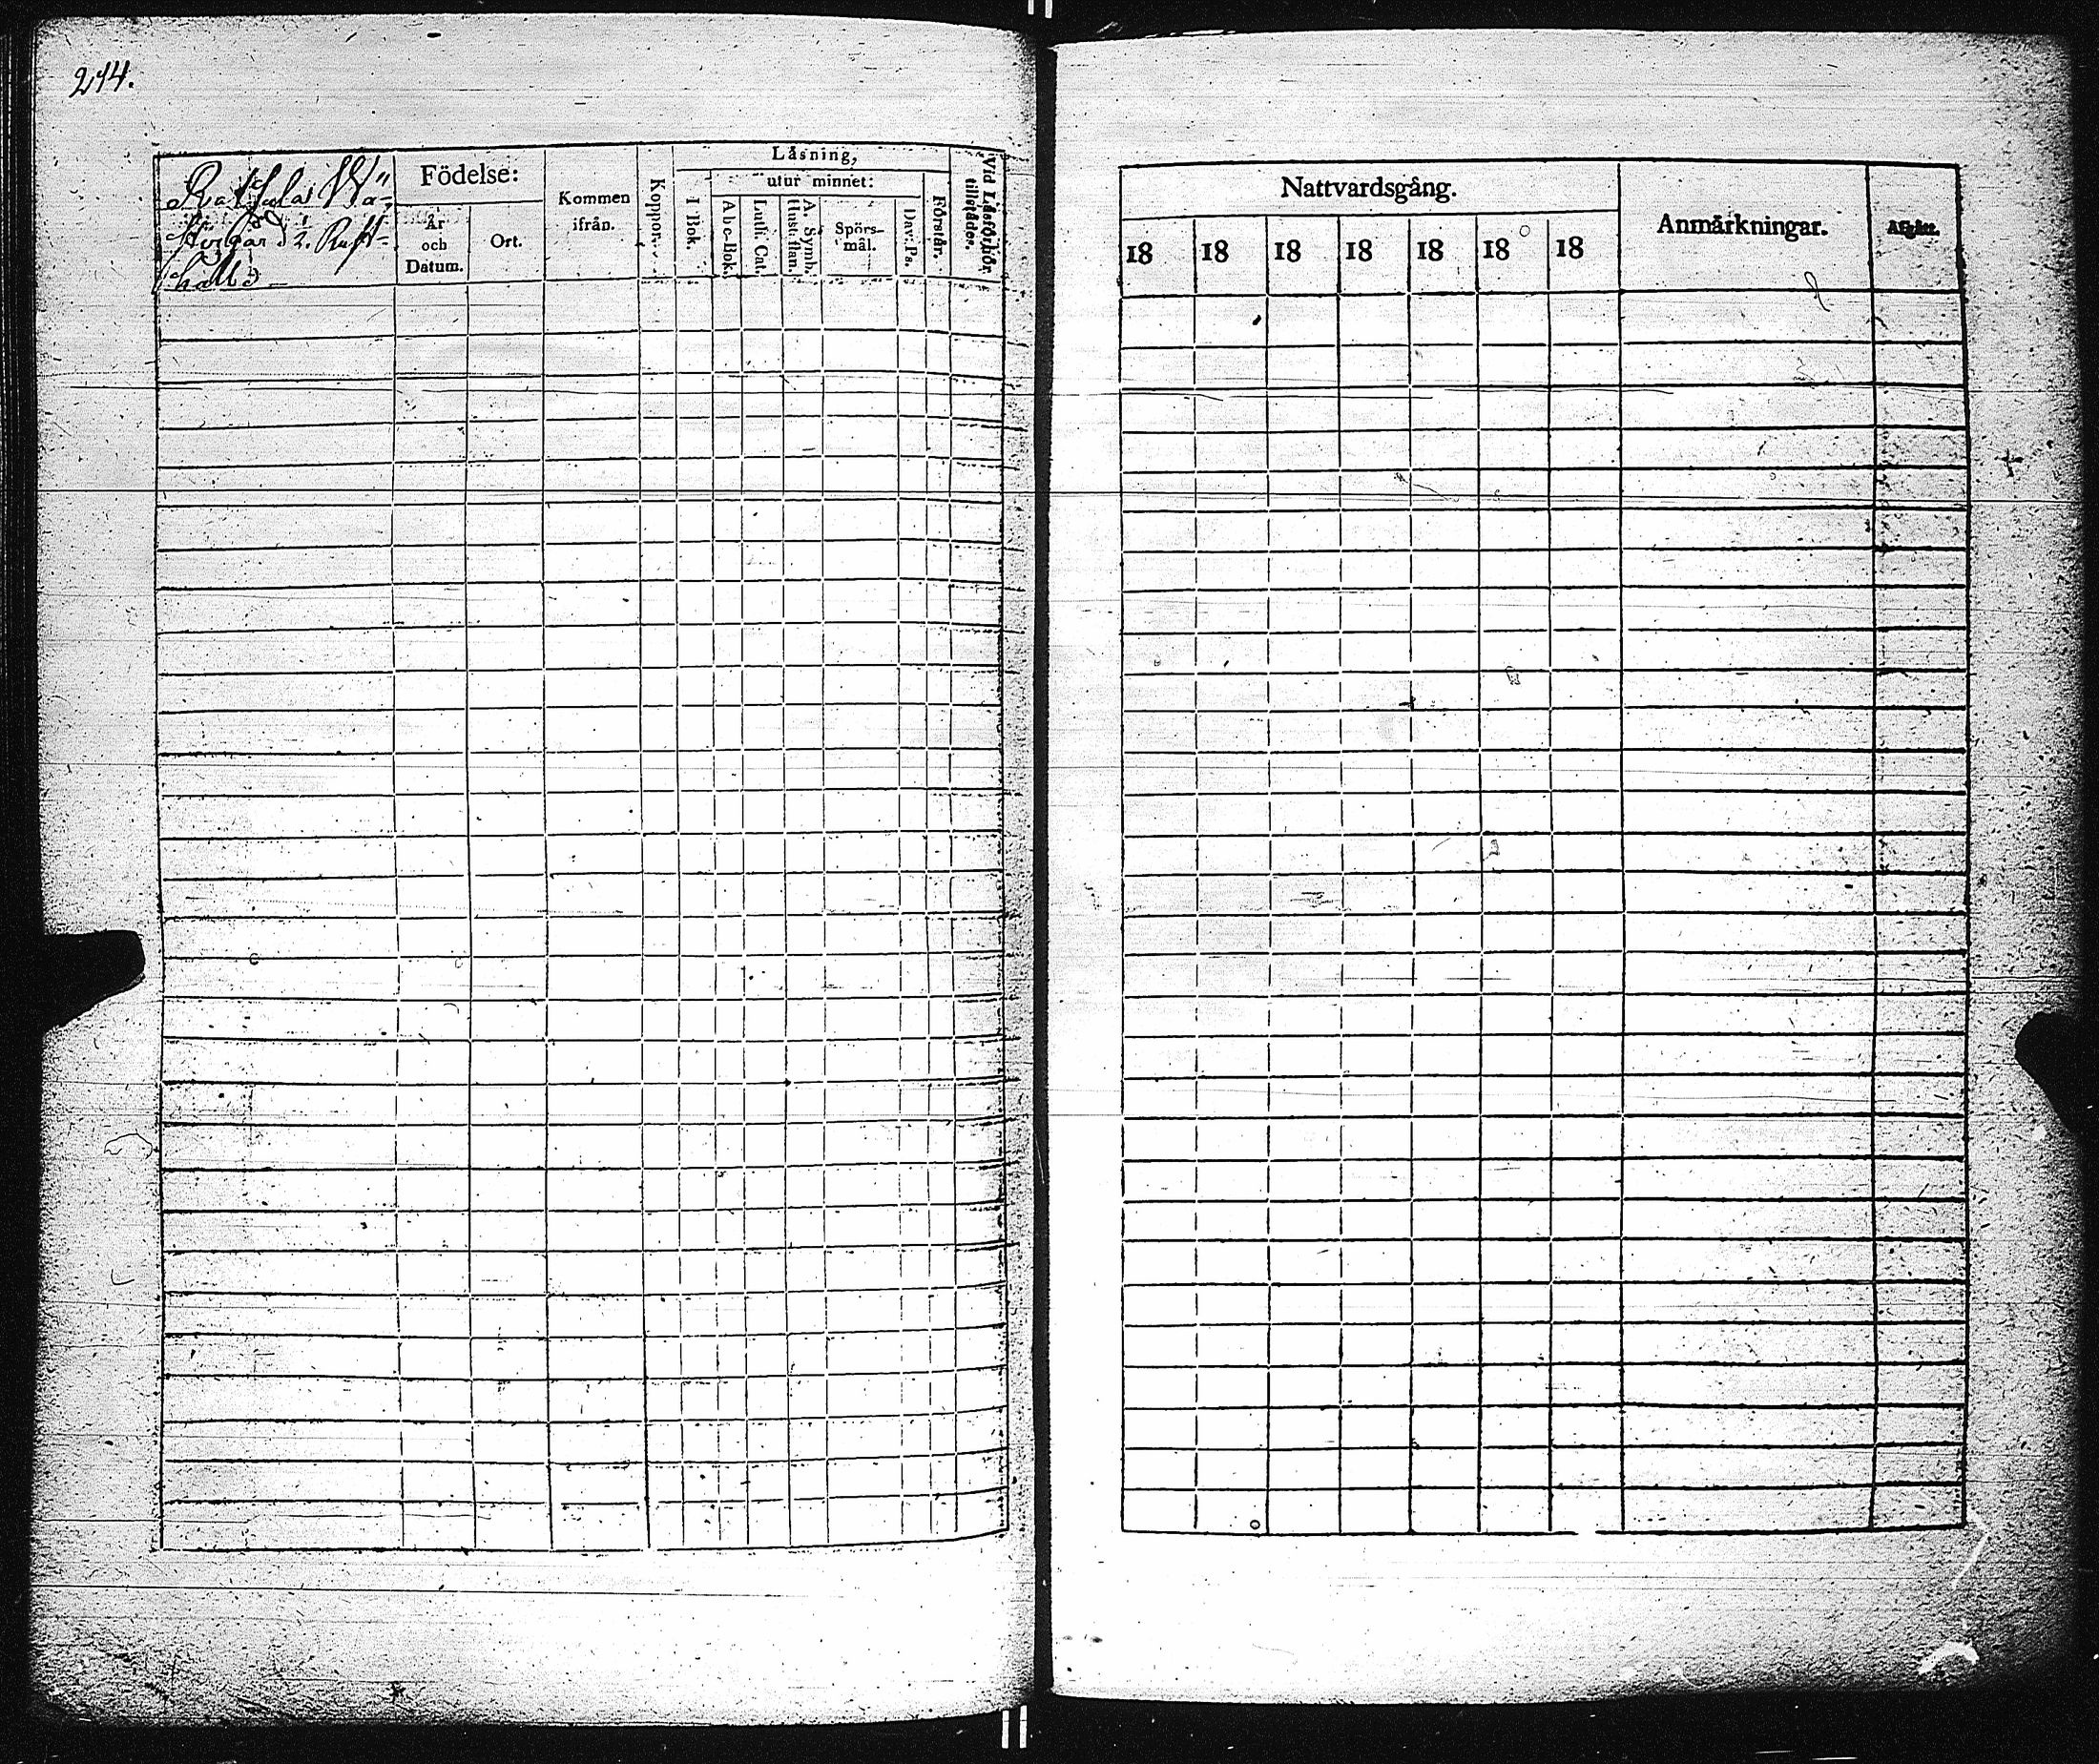 214.
Wä-
Rust-
håll
Födelse:
År och Datum.
Ort.
Kommen ifrån.
Koppor.
Läsning,
I Bok.
utur minnet:
Abc-Bok.
Luth. Cat.
A. Symb. Hust. tflan.
Spörs-mål.
Dav. Ps.
Förstår.
Vid Läsförhör tillstädes.
Nattvardsgång.
18 18 18 18 18 18 18
Anmärkningar.
Afgått.